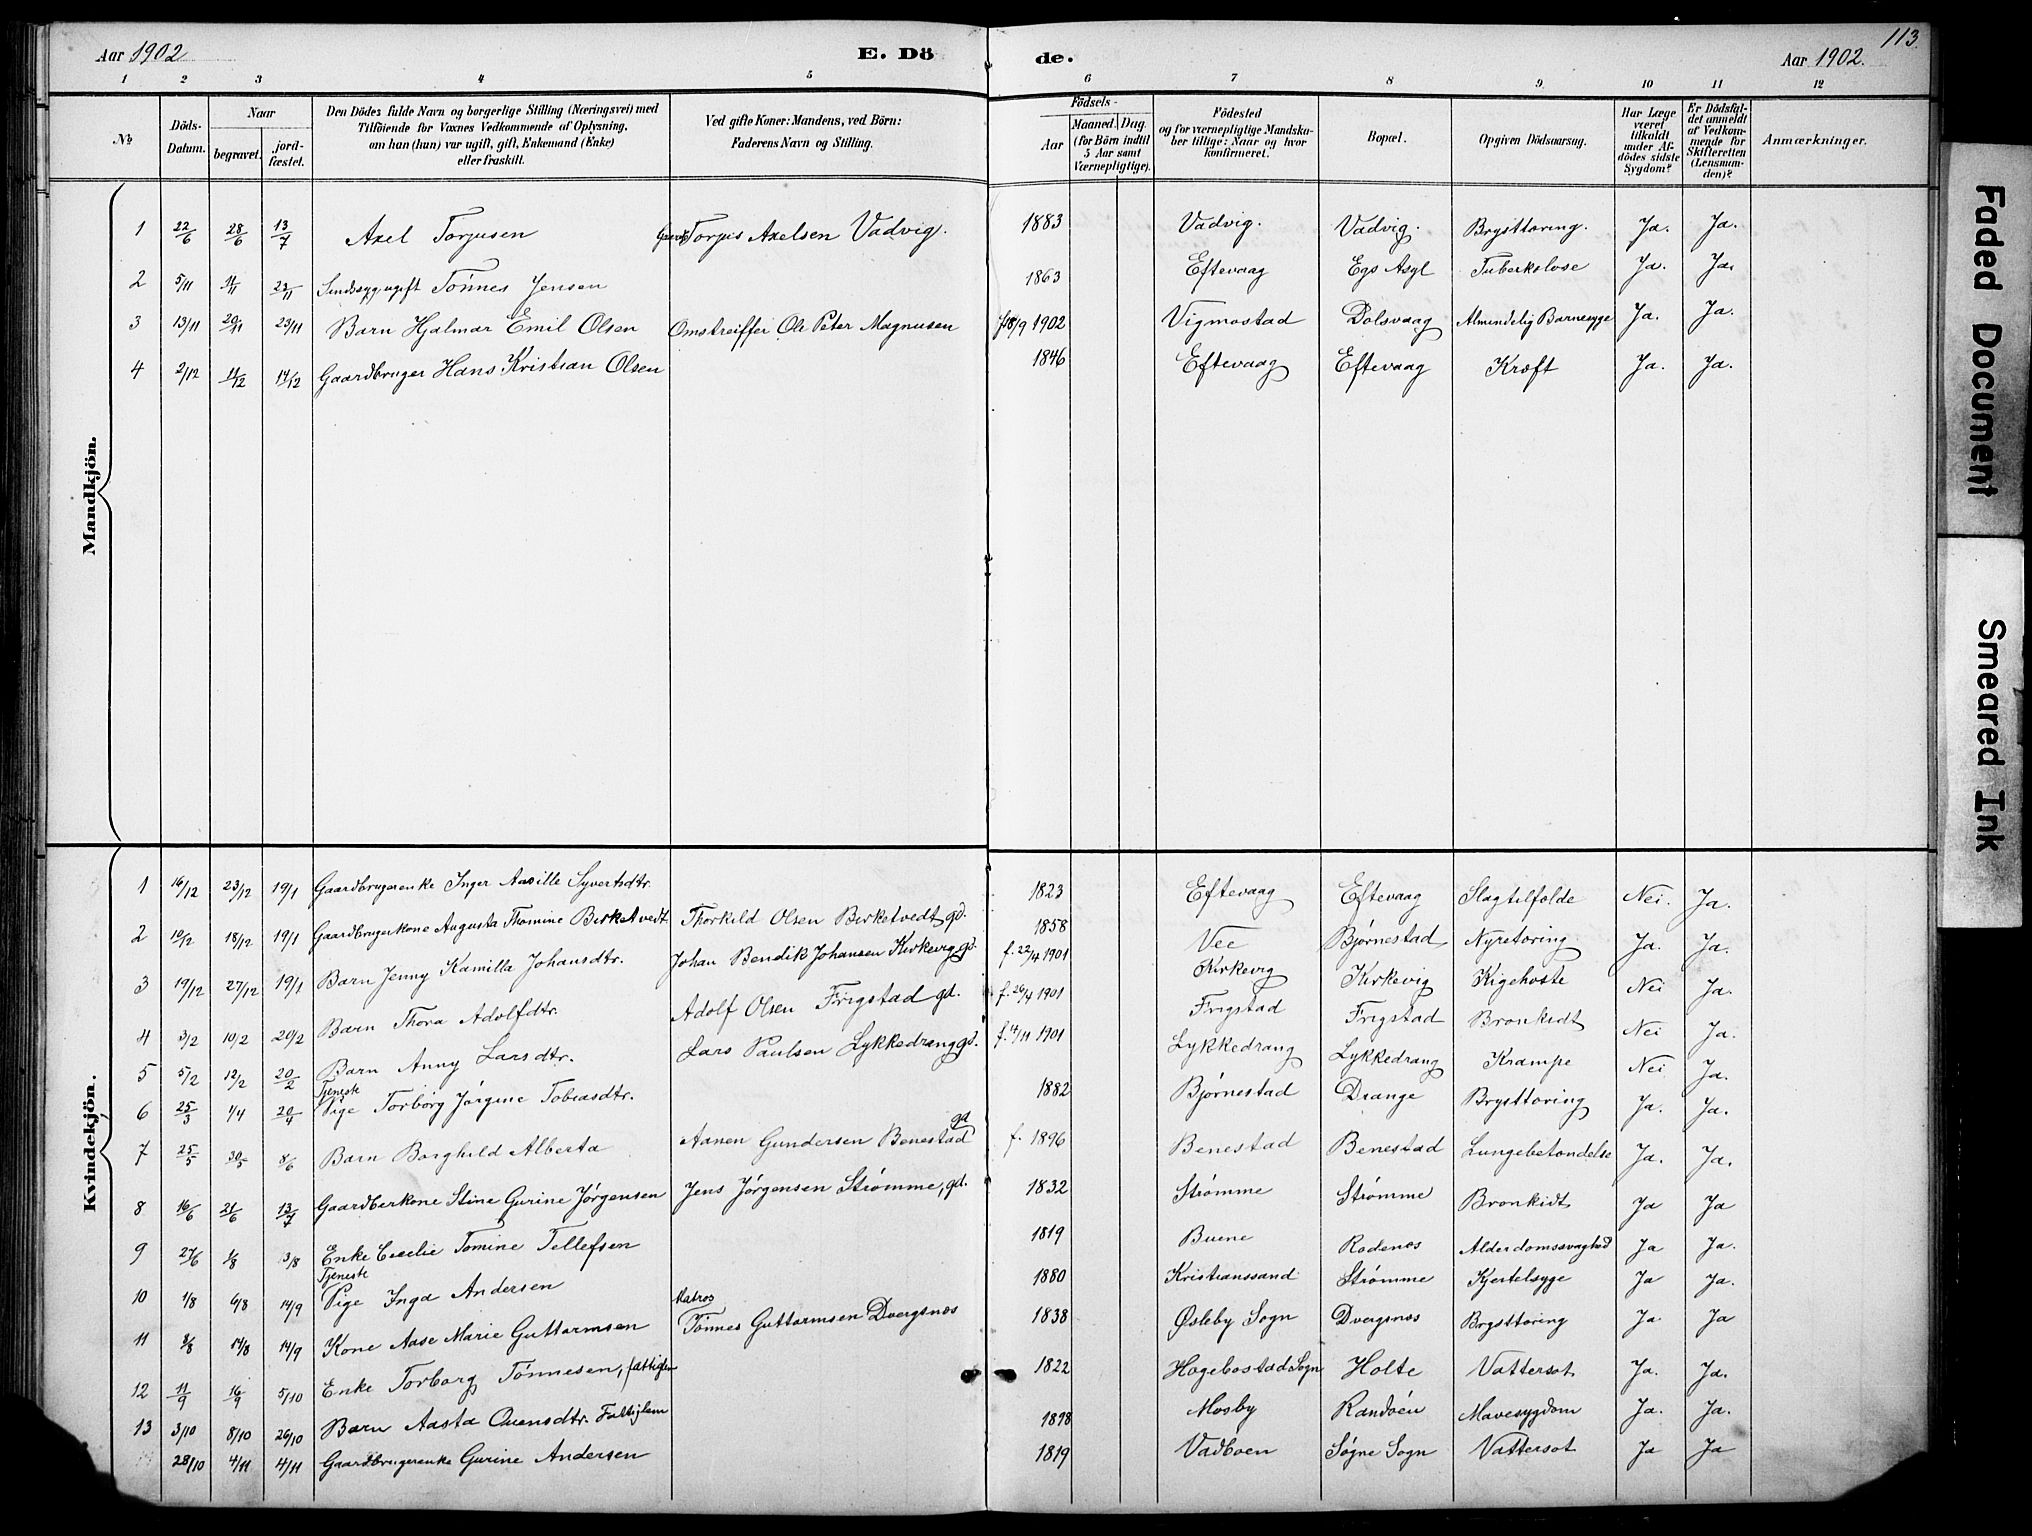 Aar 1902
E. Dö
de.
Aar 1902.
113
1 2 3 4 5 6 7 8 9 10 11 12
No.
Döds-Datum.
Naar
begravet.
jordfæstet.
Den Dödes fulde Navn og borgerlige Stilling (Næringsvei) med Tilföiende for Voxnes Vedkommende af Oplysning, om han (hun) var ugift, gift, Enkemand (Enke) eller fraskilt.
Ved gifte Koner: Mandens, ved Börn: Faderens Navn og Stilling.
Födsels-
Aar
Maaned. Dag.
(for Börn indtil 5 Aar samt Værnepligtige).
Födested og for værnepligtige Mandskaber tillige: Naar og hvor konfirmeret.
Bopæl.
Opgiven Dödsaarsag.
Har Læge været tilkaldt under Afdödes sidste Sygdom?
Er Dödsfaldet anmeldt af Vedkommende for Skifteretten (Lensmanden)?
Anmærkninger.
Mandkjön.
1 22/6 28/6 13/7 Axel Torjusen Torjus Axelsen Vadvig. 1883 Vadvig. Vadvig. Brysttæring. Ja. Ja.
2 5/11 11/11 23/11 Sindssyg ugift Tönnes Jensen 1863 Eftevaag Egs Asyl Tuberkolose Ja. Ja.
3 13/11 20/11 23/11 Barn Hjalmar Emil Olsen Omstreiffer Ole Peter Magnusen f 18/9 1902 Vigmostad Dolsvaag Almindelig Barnesyge Ja. Ja.
4 2/12 11/12 14/12 Gaardbruger Hans Kristian Olsen 1846 Eftevaag Eftevaag Kræft Ja. Ja.
Kvindekjön.
1 16/12 23/12 19/1 Gaardbrugerenke Inger Aasille Syvertsdtr. 1823 Eftevaag Eftevaag Slagtilfælde Nei. Ja.
2 10/12 18/12 19/1 Gaardbrugerkone Augusta Thomine Birketvedt Thorkild Olsen Birketvedt gd. 1858 Vee Bjørnestad Nyretæring Ja. Ja.
3 19/12 27/12 19/1 Barn Jenny Kamilla Johansdtr. Johan Bendik Johansen Kirkevig gd. f. 22/4 1901 Kirkevig Kirkevig Kigehoste Nei Ja.
4 3/2 10/2 20/2 Barn Thora Adolfdtr. Adolf Olsen Frigstad gd. f. 26/4 1901 Frigstad Frigstad Bronkidt Nei Ja.
5 5/2 12/2 20/2 Barn Anny Larsdtr. Lars Paulsen Lykkedrang gd. f. 14/11 1901 Lykkedrang Lykkedrang Krampe Nei Ja.
6 25/3 1/4 20/4 Tjeneste Pige Torborg Jørgine Tobiasdtr. 1882 Bjørnestad Drange Brysttæring Ja. Ja.
7 25/5 30/5 8/6 Barn Borghild Alberta Aanen Gundersen Benestad gd f. 1896 Benestad Benestad Lungebetændelse Ja. Ja.
8 16/6 21/6 13/7 Gaardberkone Stine Gurine Jørgensen Jens Jørgensen Strømme, gd. 1832 Strømme Strømme Bronkidt Ja Ja
9 27/6 1/8 3/8 Enke Cecelie Tomine Tellefsen 1819 Buene Rødenes Alderdomssvaghed Ja Ja.
10 1/8 6/8 14/9 Tjeneste Pige Inga Andersen 1880 Kristianssand Strømme Kjertelsyge Ja Ja.
11 8/8 14/8 14/9 Kone Aase Marie Guttormsen Matros Tönnes Guttormsen Dvergsnes 1838 Øsleby Sogn Dvergsnes Brysttæring Ja. Ja
12 11/9 16/9 5/10 Enke Torborg Tönnesen, fattiglem 1822 Hægebostad Sogn Holte Vattersot Ja. Ja.
13 3/10 8/10 26/10 Barn Aasta Ovensdtr. Fattiglem 1898 Mosby Randøen Mavesygdom Ja. Ja.
28/10 4/11 4/11 Gaardbrugerenke Gurine Andersen 1819 Vadboen Søgne Sogn Vattersot Ja Ja
Faded Document
Smeared Ink